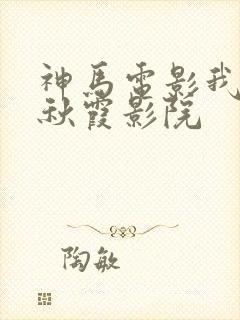 神马电影我
秋霞影院
陶敏